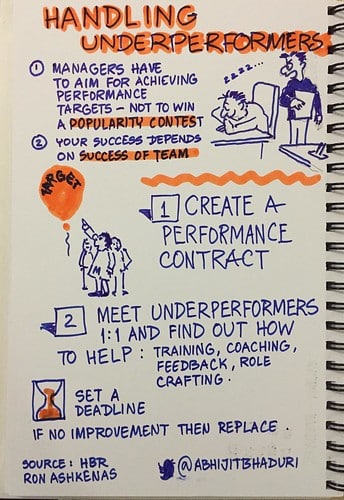 HANDLING
UNDERPERFORMERS
1 MANAGERS HAVE
TO AIM FOR ACHIEVING
PERFORMANCE
TARGETS - NOT TO WIN
A POPULARITY CONTEST
2 YOUR SUCCESS DEPENDS
ON SUCCESS OF TEAM
zzzz...
TARGET
M
1 CREATE A
PERFORMANCE
CONTRACT
2 MEET UNDERPERFORMERS
1:1 AND FIND OUT HOW
TO HELP: TRAINING, COACHING,
FEEDBACK, ROLE
CRAFTING.
SET A
DEADLINE
IF NO IMPROVEMENT THEN REPLACE.
SOURCE: HBR
RON ASHKENAS
@ABHIJITBHADURI